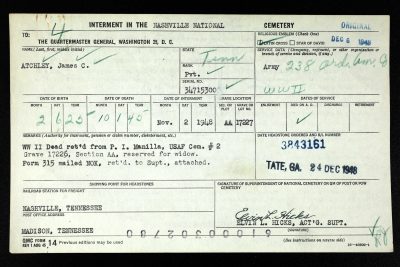 INTERMENT IN THE NASHVILLE NATIONAL CEMETERY
ORIGINAL
TO: 4
THE QUARTERMASTER GENERAL, WASHINGTON 25, D. C.
RELIGIOUS EMBLEM (Check One)
DEC 6 1948
STAR OF DAVID
NAME (Last, first, middle initial)
STATE
Tenn
ATCHLEY, James C.
RANK
Pvt.
Army 238
SERIAL NO.
34715300
WW II
DATE OF BIRTH
DATE OF DEATH
DATE OF INTERMENT
GRAVE LOCATION
MONTH DAY YEAR MONTH DAY YEAR MONTH DAY YEAR
2 6 25 10 1 45 Nov. 2 1948 AA 17227
WW II Dead ret'd from P. I. Manilla, USAF Cem. # 2
Grave 17226, Section AA, reserved for widow.
Form 315 mailed NOK, ret'd. to Supt., attached.
HEADSTONE ORDERED AND B/L NUMBER
3843161
TATE, GA. 24 DEC 1948
SHIPPING POINT FOR HEADSTONE
RAILROAD STATION FOR FREIGHT
NASHVILLE, TENNESSEE
SIGNATURE OF SUPERINTENDENT OF NATIONAL CEMETERY OR QM OF POST OR POW CEMETERY
Elvin L. Hicks
POST OFFICE ADDRESS
ELVIN L. HICKS, ACT'G. SUPT.
MADISON, TENNESSEE
QMC FORM
REV 1 AUG 45 14 Previous editions may be used
(See instructions on reverse side)